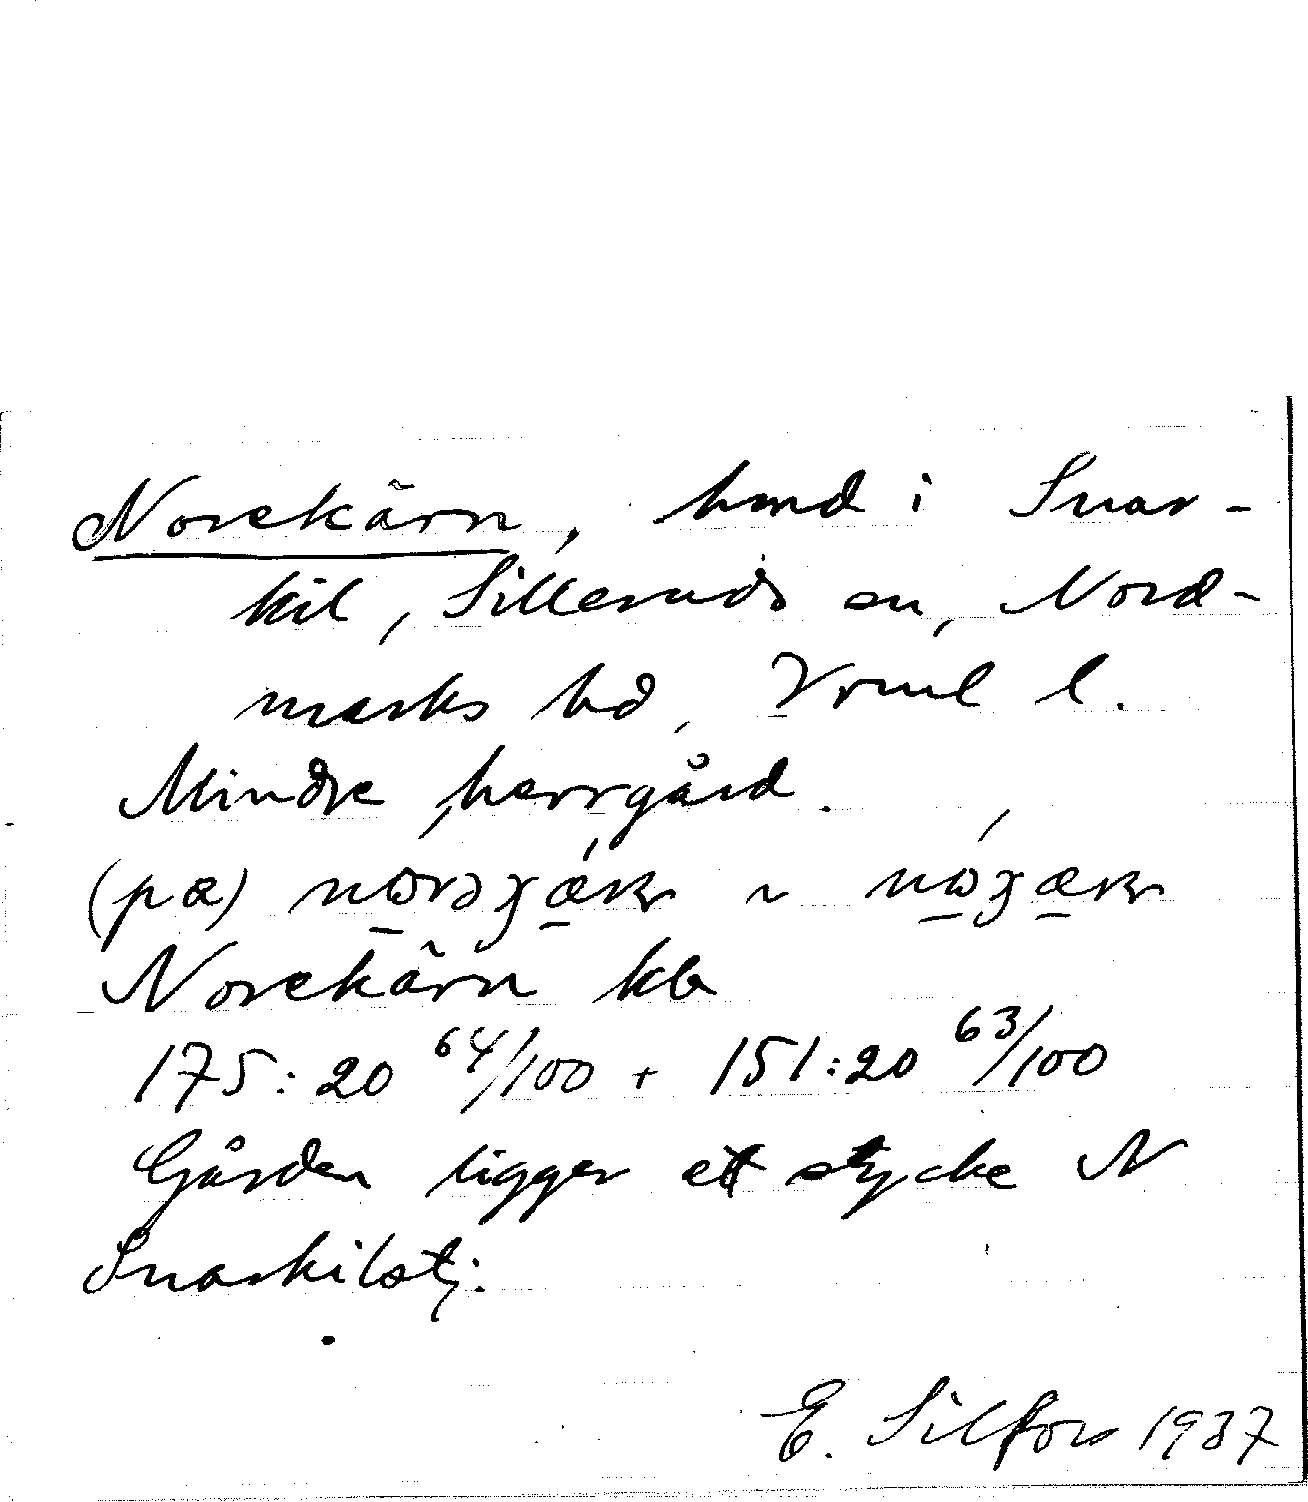 Norekärn, hmd i Snar-
kil, Silleruds sn, Nord-
marks hd, Vrml l.
Mindre herrgård.
(pa)
Norekärn kb
175:20 64/100 + 151:20 63/100
Gården ligger ett stycke N
Snarkilstj.
E. Silfors 1937